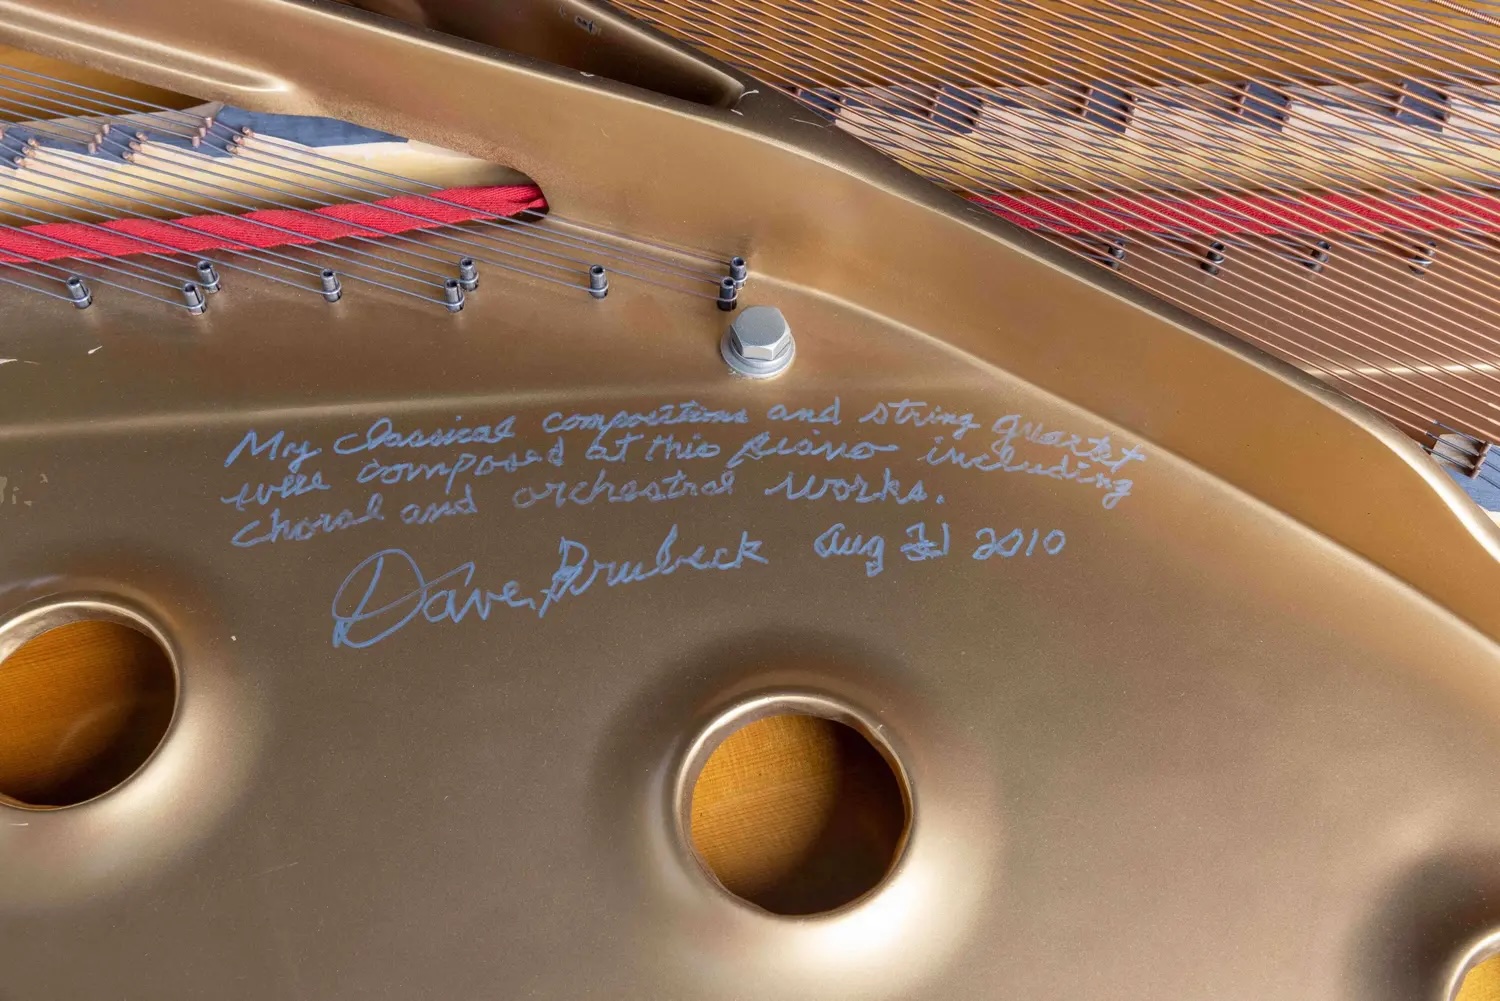 My Classical compositions and string quartet
were composed at this piano including
choral and orchestral works.
Dave Brubeck Aug 2010